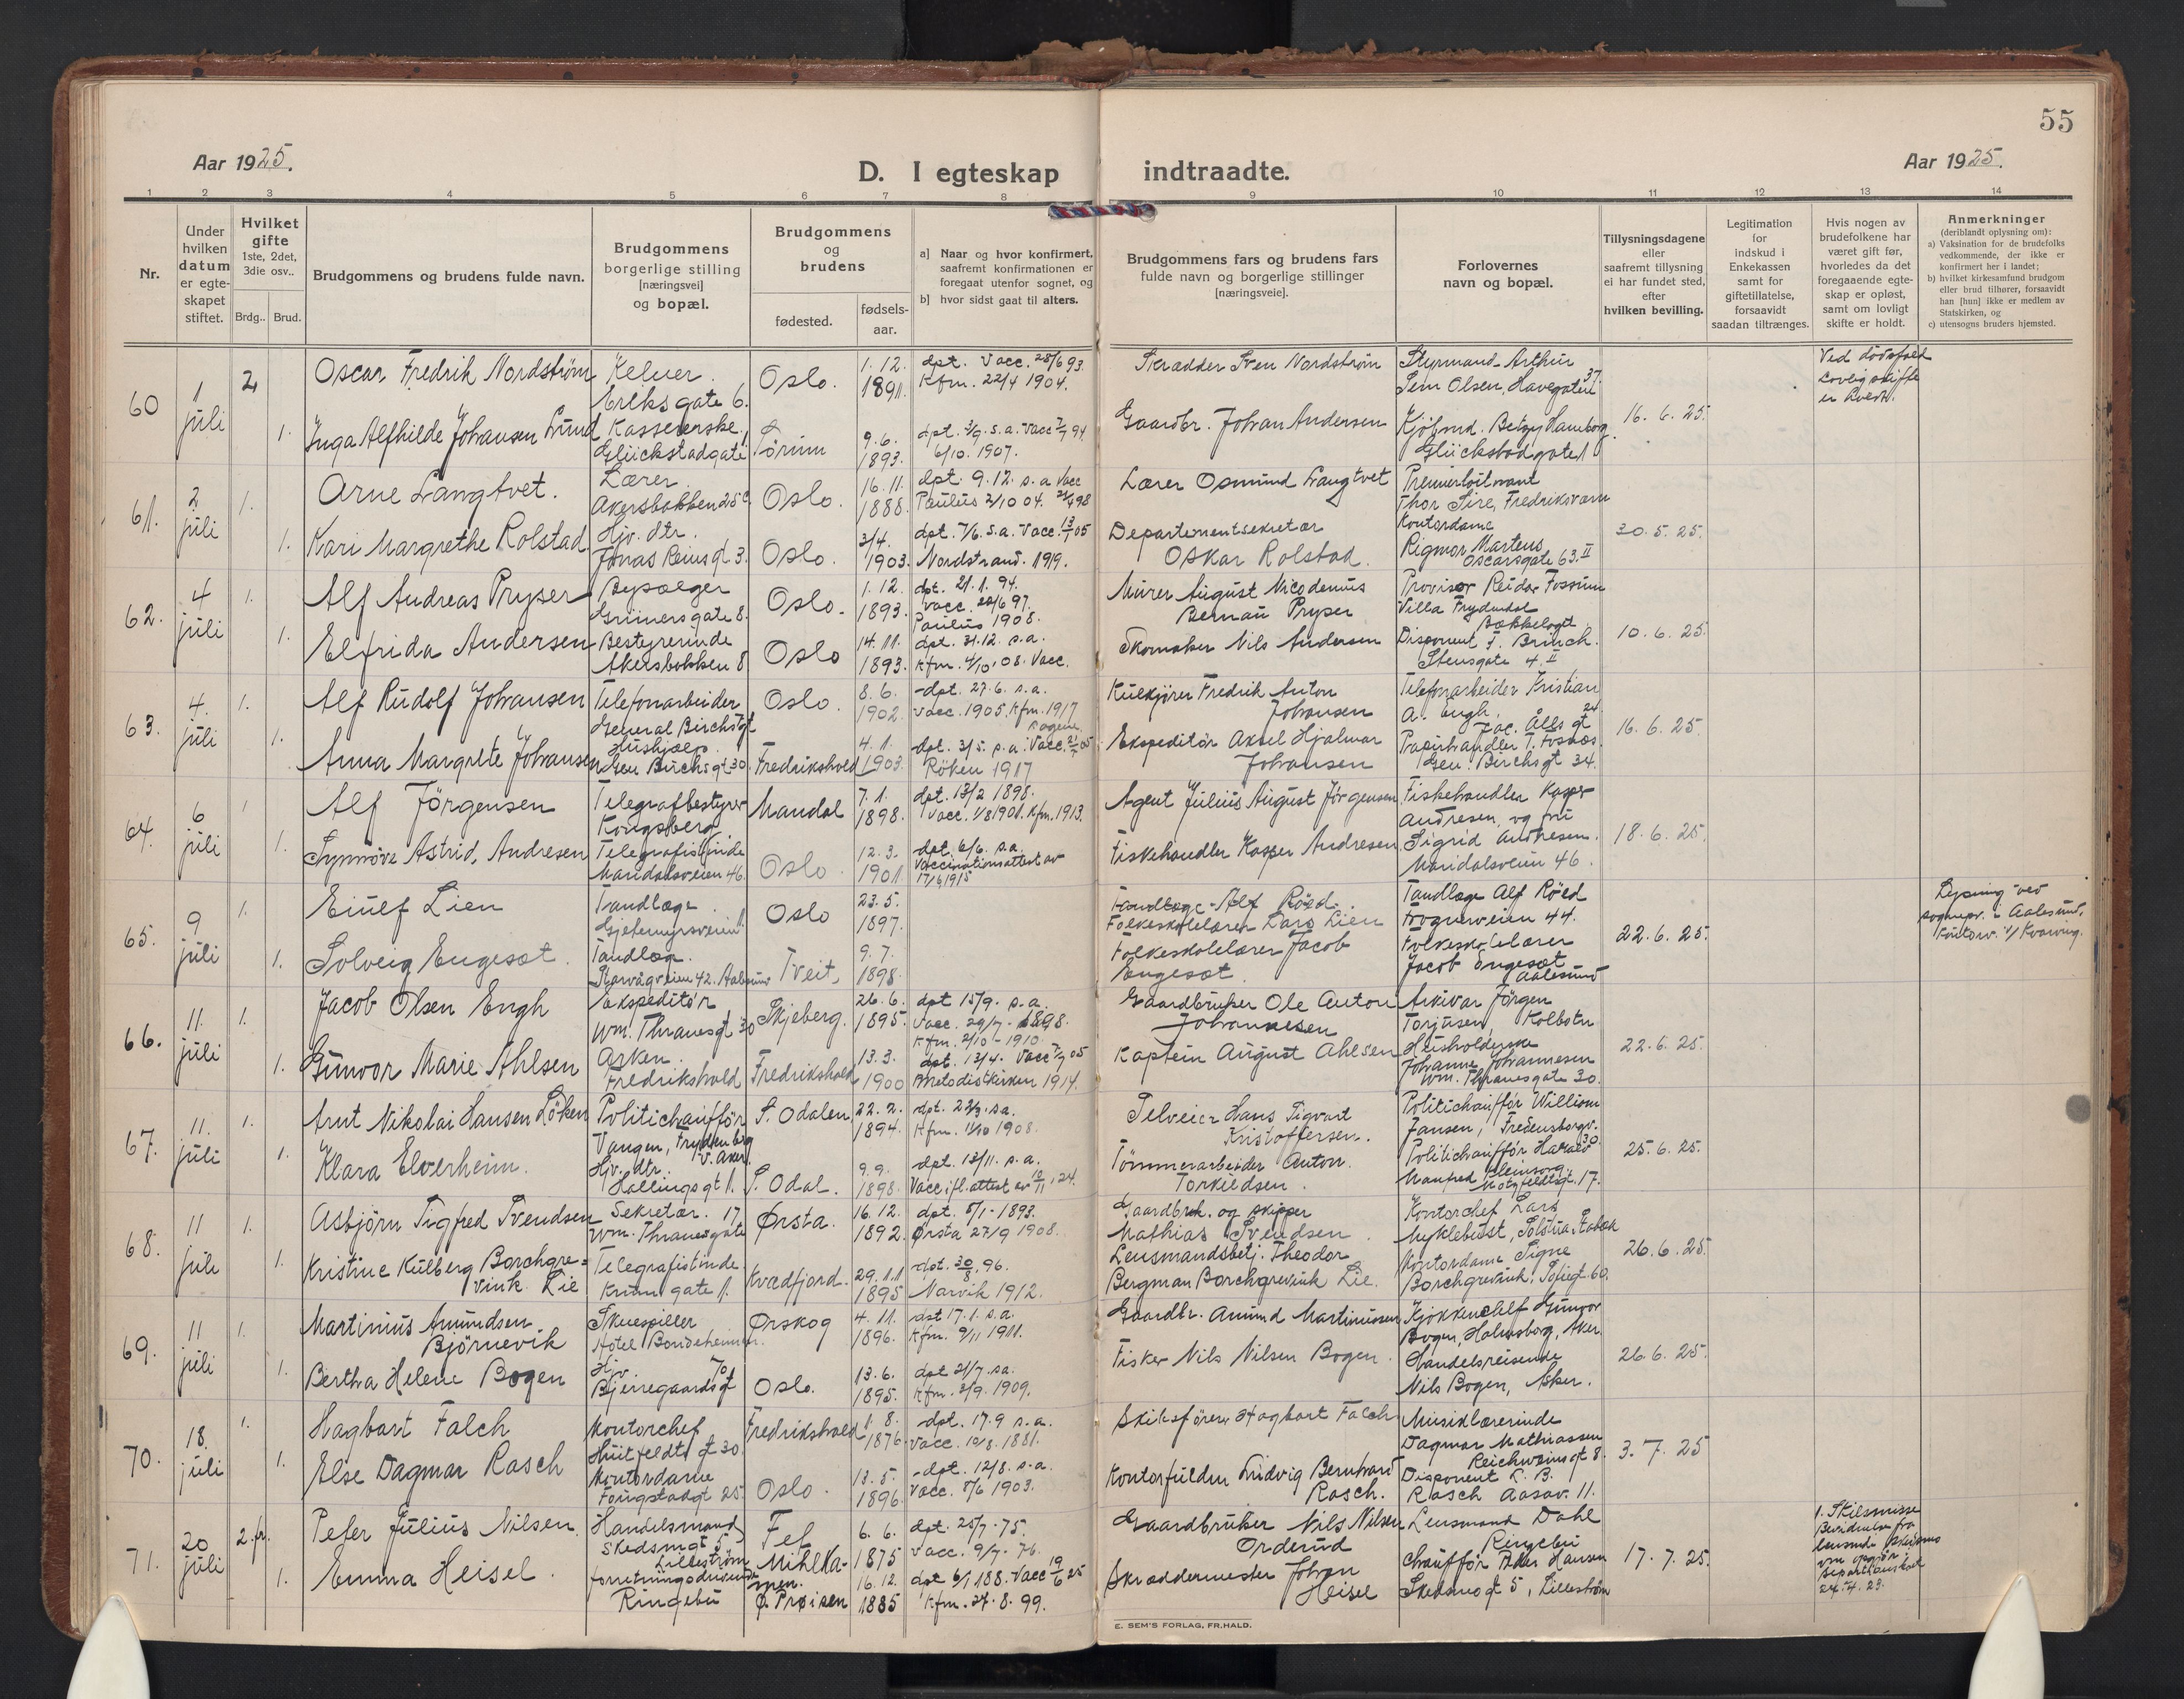 55
Aar 1925.
D. I egteskap indtraadte.
Aar 1925.
1 2 3 4 5 6 7 8 9 10 11 12 13 14
Nr.
Under hvilken datum er egte- skapet stiftet.
Hvilket gifte 1ste, 2det, 3die osv..
Brdg.. Brud.
Brudgommens og brudens fulde navn.
Brudgommens borgerlige stilling [næringsvei] og bopæl.
Brudgommens og brudens
fødested.
fødsels- aar.
a] Naar og hvor konfirmert, saafremt konfirmationen er foregaat utenfor sognet, og
b] hvor sidst gaat til alters.
Brudgommens fars og brudens fars fulde navn og borgerlige stillinger [næringsveie].
Forlovernes navn og bopæl.
Tillysningsdagene eller saafremt tillysning ei har fundet sted, efter hvilken bevilling.
Legitimation for indskud i Enkekassen samt for giftetillatelse, forsaavidt saadan tiltrænges.
Hvis nogen av brudefolkene har været gift før, hvorledes da det foregaaende egte- skap er opløst, samt om lovligt skifte er holdt.
Anmerkninger (deriblandt oplysning om):
a) Vaksination for de brudefolks vedkommende, der ikke er konfirmert her i landet;
b) hvilket kirkesamfund brudgom eller brud tilhører, forsaavidt han [hun] ikke er medlem av Statskirken, og
c) utensogns bruders hjemsted.
60 1 juli 2
Oscar Fredrik Nordstrøm
Kelner. Eriks gate 6.
Oslo.
1. 12. 1891.
dpt. Vacc. 28/6 93.
Kfm. 22/4 1904.
Skrædder Sven Nordstrøm
Styrmand Arthur
Sem Olsen, Havegaten 37.
16. 6. 25.
Ved dödsfald
Lovlig skifte
er
1.
Inga Alfhilde Johansen Lund
Kassererske.
Glückstadgate 1
9. 6. 1893.
dpt. 3/9. s.a. Vacc 7/7 94
6/10. 1907.
Gaardbr. Johan Andersen
Kjöbmd. Betzy Hamborg
Glückstadgate 1
61. 2 juli 1.
Arne Langtvet.
Lærer.
Akersbakken 25 c
Oslo.
16. 11. 1888.
dpt. 9. 12. s. a Vacc
Paulus 2/10 04.
Lærer Osmund Langtvet
Premierløitnant
Thor Sire, Fredriksværn
30. 5. 25.
1.
Kari Margrethe Rolstad
Hjv. dtr.
Jonas Reinsgt 3.
Oslo.
3/4. 1903.
dpt. 7/6. s.a. Vacc. 13/7 05
Nordstrand. 1919.
Departementsekretær
Oskar Rolstad.
Kontordame
Rigmor Martens
Oscarsgate 63. II
62. 4 juli 1.
Alf Andreas Pryser
Bypsælger
Grünersgate 8.
Oslo.
1. 12. 1893.
dpt. 21. 1. 94.
Vacc. 28/6 97.
Paulus 1908.
Murer August Nicodemus
Bernau Pryser
Provisor Reidar Fossum
Villa Frydendal
Bækkelaget
10. 6. 25.
1.
Elfrida Andersen
Bestyrerinde
Akersbakken 8
Oslo
14. 11. 1893.
dpt. 31. 12. s.a.
Kfm. 4/10, 08. Vacc.
Skomaker Nils Andersen
Disponent F. Brinch.
Stensgate 4. II
63. 4. juli 1.
Alf Rudolf Johansen
Telefonarbeider
General Birchsgt
Oslo.
8. 6. 1902.
dpt. 27. 6. s.a.
Vacc. 1905. Kfm. 1917
Kulkjører Fredrik Anton
Johansen
Telefonarbeider Kristian
A. Engh.
Jac. Alls gt 24
16. 6. 25
1.
Anna Margrete Johansen
Hushjælp.
Gen Birchsgt 30.
Fredrikshald
4. 11. 1903.
dpt. 3/5. s.a. Vacc.
Röken 1917
Ekspeditör Aksel Hjalmar
Johansen
Papirhandler T. Fosnæs.
Gen. Birchsgt 34.
64. 6 juli 1
Alf Jörgensen
Telegrafbestyrer
Kongsberg
Mandal
7. 1. 1898.
dpt. 13/2 1898.
Vacc. 1/8 1901. Kfm. 1913.
Agent Julius August Jörgensen
Fiskehandler Kasper
Andresen, og fru
18. 6. 25
1.
Synnöve Astrid, Andresen
Telegrafistinde
Maridalsveien 46.
Oslo
12. 3. 1901
dpt. 6/6. s.a.
Vaccinationsattest av
17/6 1915
Fiskehandler Kasper Andresen
Sigrid Andresen.
Maridalsveien 46.
65. 9 juli 1.
Einulf Lien
Tandlæge.
Gjetemyrsveien 11.
Oslo
23. 5. 1897.
Tandlæge Alf Röed.
Folkeskolelærer Lars Lien
Tandlæge Alf Röed
Frognerveien 44.
22. 6. 25.
Lysning ved
sognepr. i Aalesund.
1.
Solveig Engeset.
Tandlæge.
42. Aalesund
Tveit,
9. 7. 1898.
Folkeskolelærer Jacob
Engeset
Folkeskolelærer
Jacob Engeset
Aalesund
66. 11. juli 1.
Jacob Olsen Engh
Ekspeditör
Wm. Thranesgt 30
Skjeberg.
26. 6. 1895.
dpt 15/9. s.a.
Vacc. 29/7 - 1898.
Kfm. 2/10 - 1910.
Gaardbruker Ole Anton
Johannesen
Arkivar Jörgen
Torjusen, Kolbotn
22. 6. 25.
1.
Gunvor Marie Ahlsen
Asken.
Fredrikshald
Fredrikshald
13. 3. 1900
dpt. 13/4. Vacc 7/9 05
Metodistkirken 1914.
Kaptein August Ahlsen
Husholderske
Johanne Johannesen
Wm. Thranesgate 30.
67. 11. juli 1.
Arnt Nikolai Hansen Löken
Politichaufför
Vangen, Frydenberg
V. Aker.
S. Odalen
22. 2. 1894.
dpt. 22/3. s.a.
Kfm. 11/10 1908.
Selveier Hans Sigvart
Kristoffersen.
Politichaufför William
Jansen, Fredensborgv. 30.
25. 6. 25.
1.
Klara Elverheim.
Hjv. dtr.
Hallingsgt 1.
S. Odal.
9. 9. 1898.
dpt. 13/11. s.a.
Vacc ifl. attest av 10/11, 24.
Tömmerarbeider Anton.
Torkildsen.
Politichaufför Harald
Manfred
Motzfeldtsgt. 17.
68. 11 juli 1.
Asbjörn Sigfred Svendsen
Sekretær.
Wm. Thranesgate 17
Ørsta.
16. 12. 1892.
dpt. 8/1 - 1893.
Ørsta 27/9 1908.
Gaardbrk. og skipper
Mathias Svendsen.
Kontorchef Lars
Myklebust, Solstua, Stabæk
26. 6. 25.
1.
Kristine Kulberg Borchgre=
vink Lie
Telegrafistinde.
Krumgate 1.
Kvædfjord.
29. 11 1895
dpt. 30/8, 96.
Narvik 1912.
Lensmandsbetj. Theodor
Bergman Borchgrevink Lie.
Kontordame Signe
Borchgrevink. Sofiegt. 60.
69. 11 juli 1.
Martinius Amundsen
Björnevik
Skuespiller
Hotel Bondeheimen.
Ørskog
4. 11. 1896.
dpt 17. 1. s.a.
Kfm. 9/11 1911.
Gaardbr. Amund Martinussen
Kjökkenchef Gunvor
Bogen, Holmsborg, Aker
26. 6. 25.
1.
Bertha Helene Bogen
Hjv.
Bjerregaardsgt
Oslo.
13. 6. 1895.
dpt 21/7. s.a.
Kfm. 3/9. 1909.
Fisker Nils Nilsen Bogen.
Handelsreisende
Nils Bogen, Aker.
70. 18. juli 1.
Hagbart Falch
Kontorchef
Huitfeldts gt 30
Fredrikshald
1. 8. 1876
dpt. 17. 9 s.a.
Vacc. 10/8. 1881.
Skibsförer Hagbart Falch
Musiklærerinde
Dagmar Mathiassen
Reichweinsgt 8.
3. 7. 25
1.
Else Dagmar Rasch
Kontordame
Fougstadgt 25
Oslo.
13. 5. 1896.
dpt. 12/8. s.a.
Vacc. 8/6 1903.
Kontorfuldm Ludvig Bernhard
Rasch.
Disponent L. B.
Rasch Aasav. 11.
71. 20 juli 2. fr.
Peter Julius Nilsen
Handelsmand
Skedsmgt 5
Lilleström
Fet
6. 6. 1875
dpt. 25/7. 75.
Vacc. 9/7. 76.
Gaardbruker Nils Nilsen
Orderud
Lensmand Dahl
Ringebu
17. 7. 25.
1. Skilsmisse
Bevidnelse fra
24. 4. 23.
1.
Emma Heisel.
forretningsdrivende
Ringebu
Mihlka-
men.
Ø. Prøisen
16. 12. 1885
dpt 6/1 188. Vacc 19/6 25
Kfm. 27. 8. 99.
Skræddermester Johan
Heisel
Chaufför Peder Hansen
Skedsmogt 5, Lilleström
E. SEM'S FORLAG, FR.HALD.